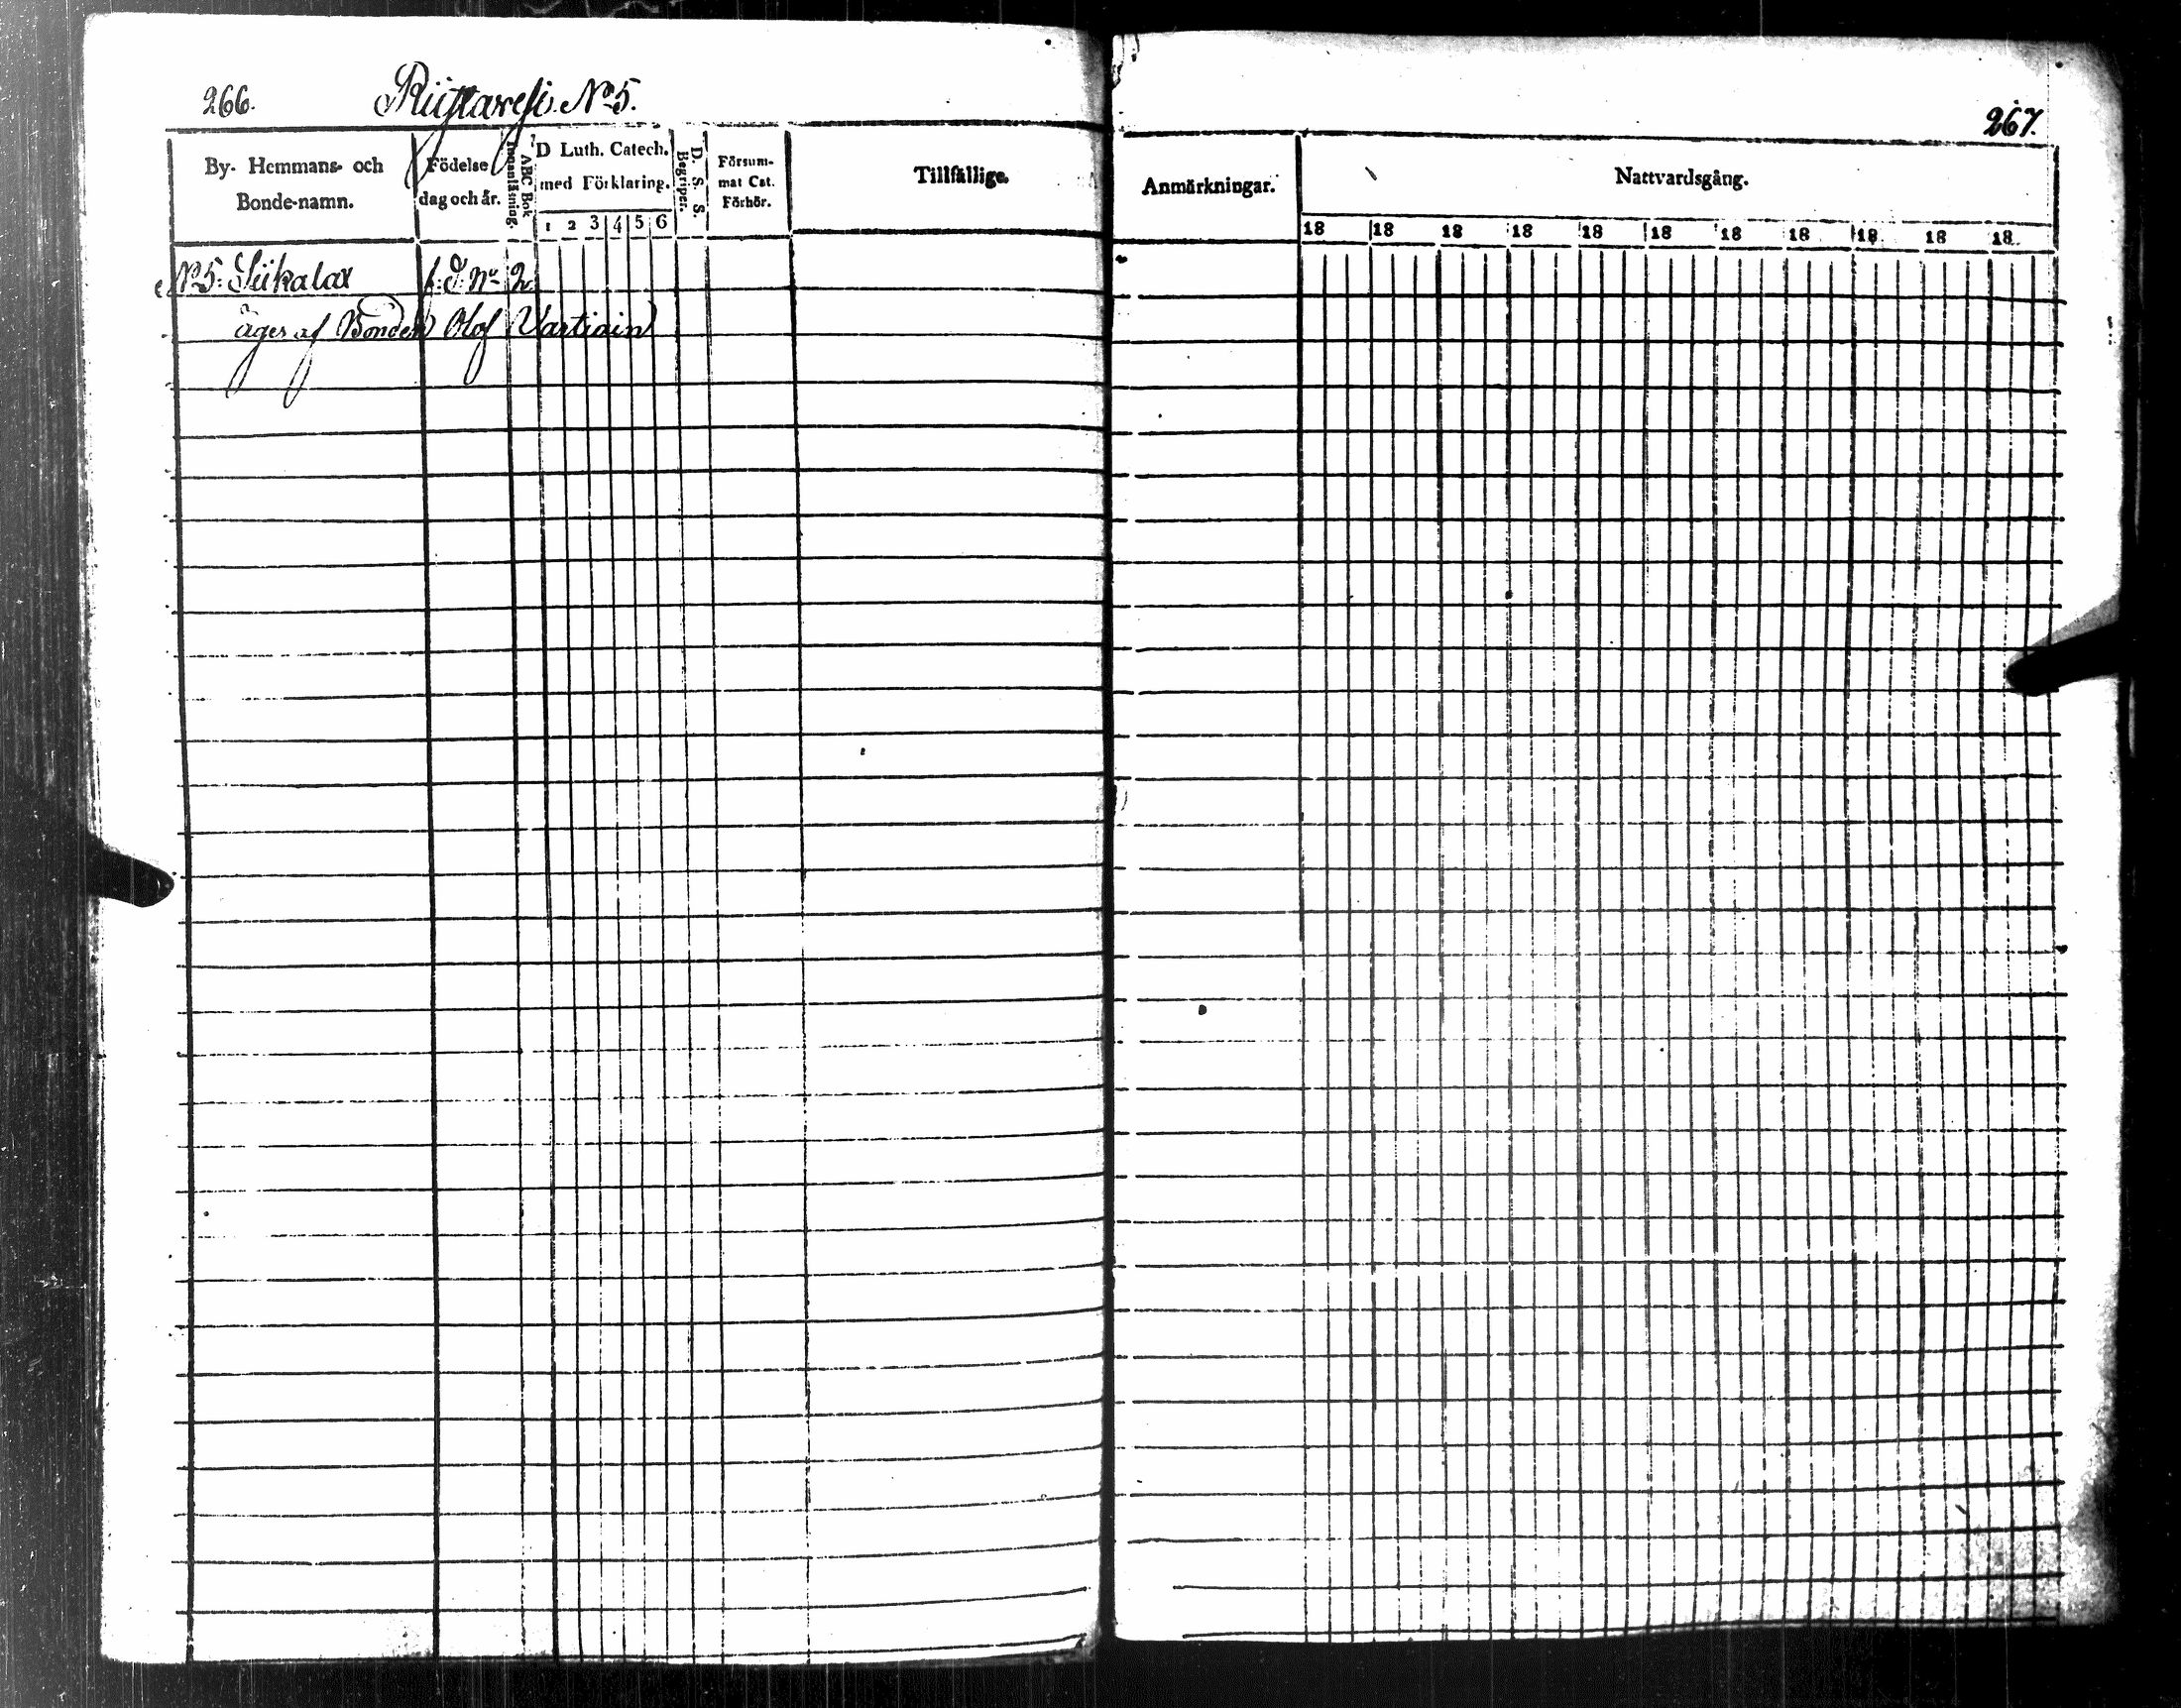 266. Riistavesi. No 5.
By- Hemmans- och Bonde-namn.
Födelse dag och år.
Innanläsning.
ABC Bok
D Luth. Catech. med Förklaring.
1 2 3 4 5 6
D. S. S. Begriper.
Försum- mat Cat. Förhör.
Tillfällige.
No 5. Siikalax f. d. No 2
äges af Bonden Olof Vartiain
267.
Anmärkningar.
Nattvardsgång.
18 18 18 18 18 18 18 18 18 18 18